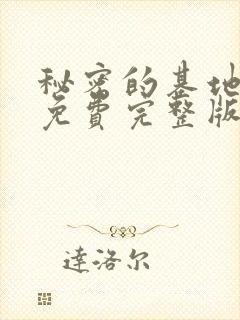 秘密的基地
免費完整版
達洛尔